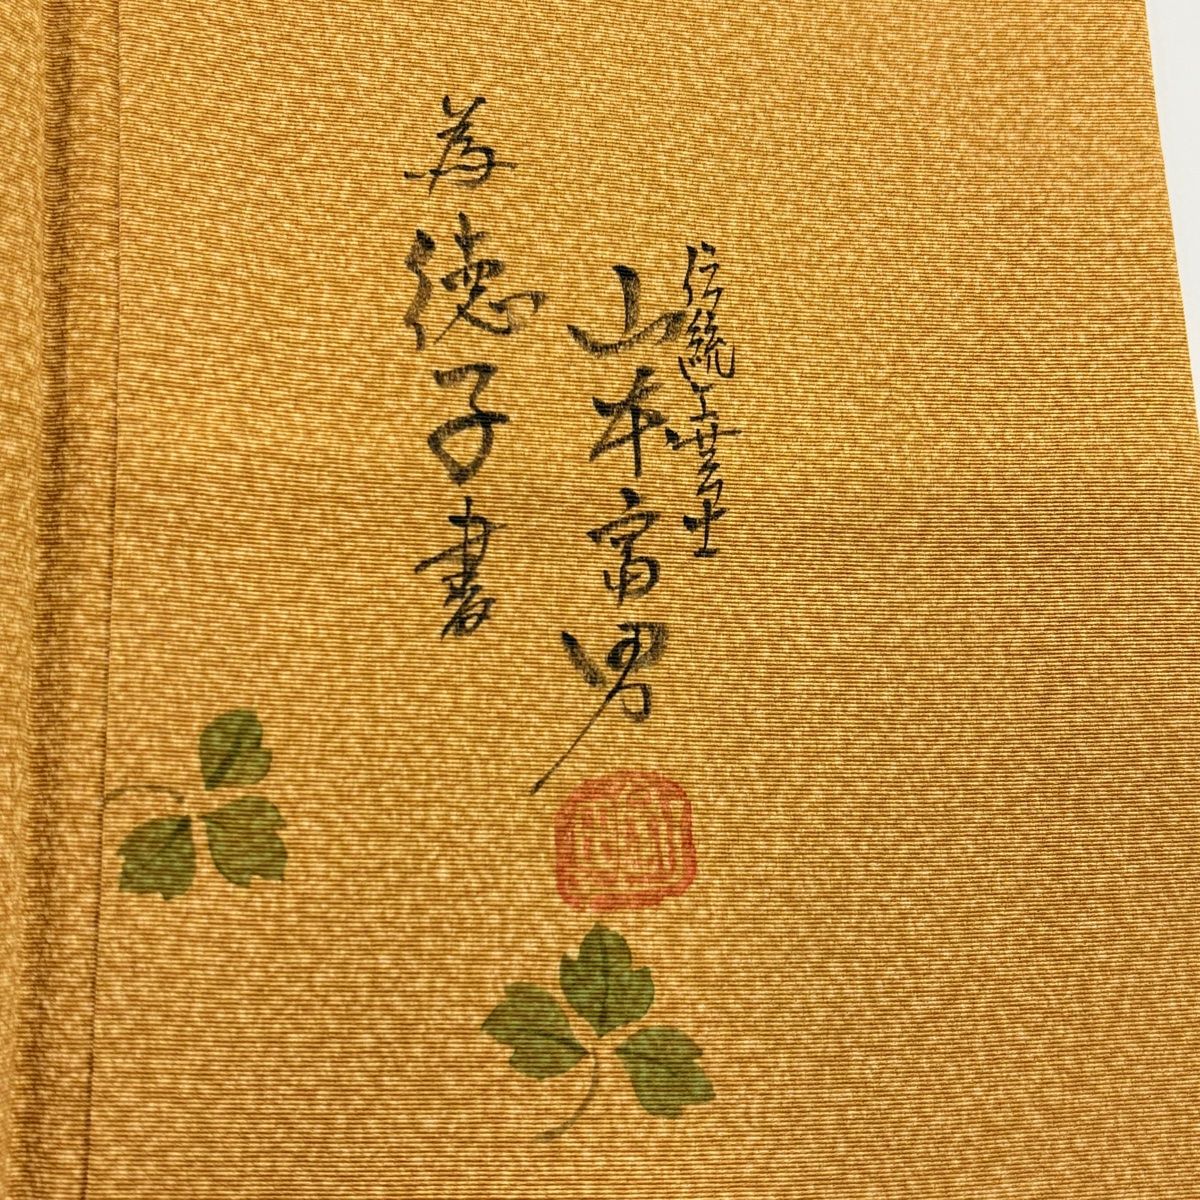 伝統工芸士
山本富男
為徳子書